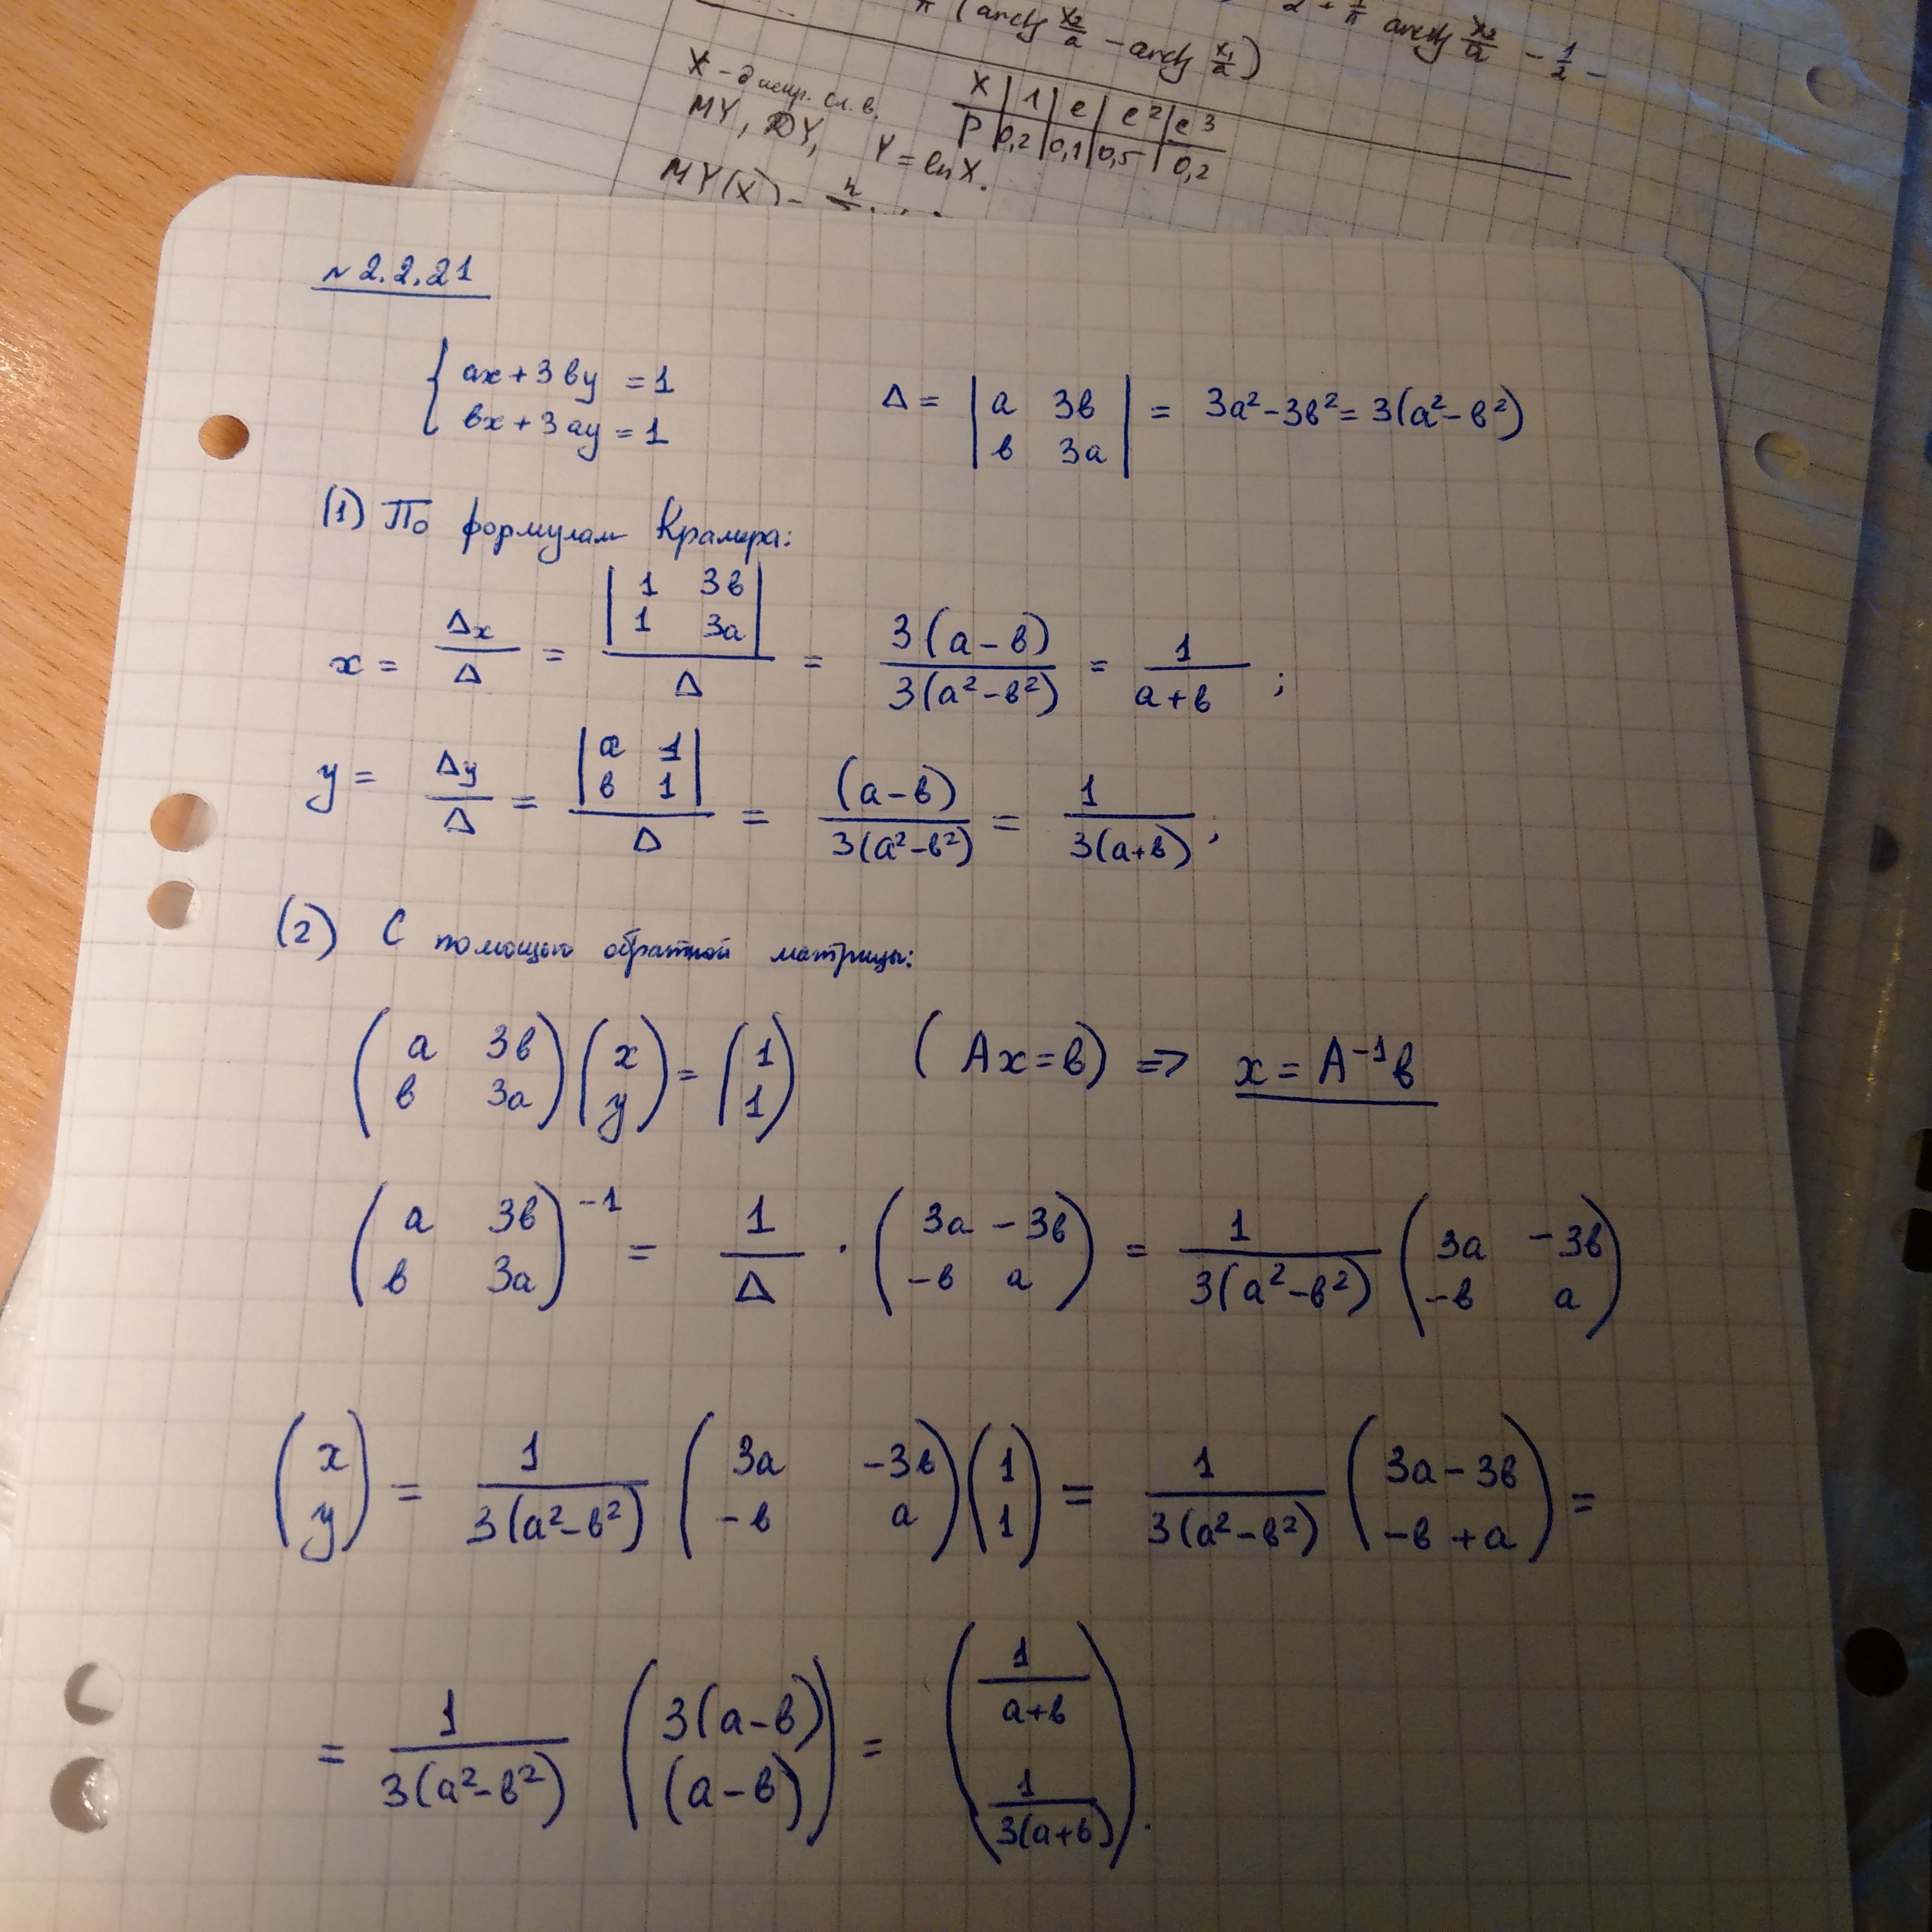 π (arctg x₂/a − arctg x₁/a)
arctg x₂/a − 1/2 −
X − дискр. сл. в.
X | 1 | e | e² | e³
P | 0,2 | 0,1 | 0,5 | 0,2
MY, DY, Y = ln X.
MY(X) =
№ 2.2.21
{ ax + 3вy = 1
вx + 3ay = 1
Δ = | a 3в |
| в 3a | = 3a² − 3в² = 3(a² − в²)
(1) По формулам Крамера:
x = Δx/Δ = | 1 3в |
| 1 3a | / Δ = 3(a − в) / 3(a² − в²) = 1 / (a + в) ;
y = Δy/Δ = | a 1 |
| в 1 | / Δ = (a − в) / 3(a² − в²) = 1 / 3(a + в) ;
(2) С помощью обратной матрицы:
( a 3в
в 3a ) ( x
y ) = ( 1
1 ) (Ax = в) => x = A⁻¹в
( a 3в
в 3a )⁻¹ = 1/Δ · ( 3a −3в
−в a ) = 1 / 3(a² − в²) ( 3a −3в
−в a )
( x
y ) = 1 / 3(a² − в²) ( 3a −3в
−в a ) ( 1
1 ) = 1 / 3(a² − в²) ( 3a − 3в
−в + a ) =
= 1 / 3(a² − в²) ( 3(a − в)
(a − в) ) = ( 1 / (a + в)
1 / 3(a + в) ).